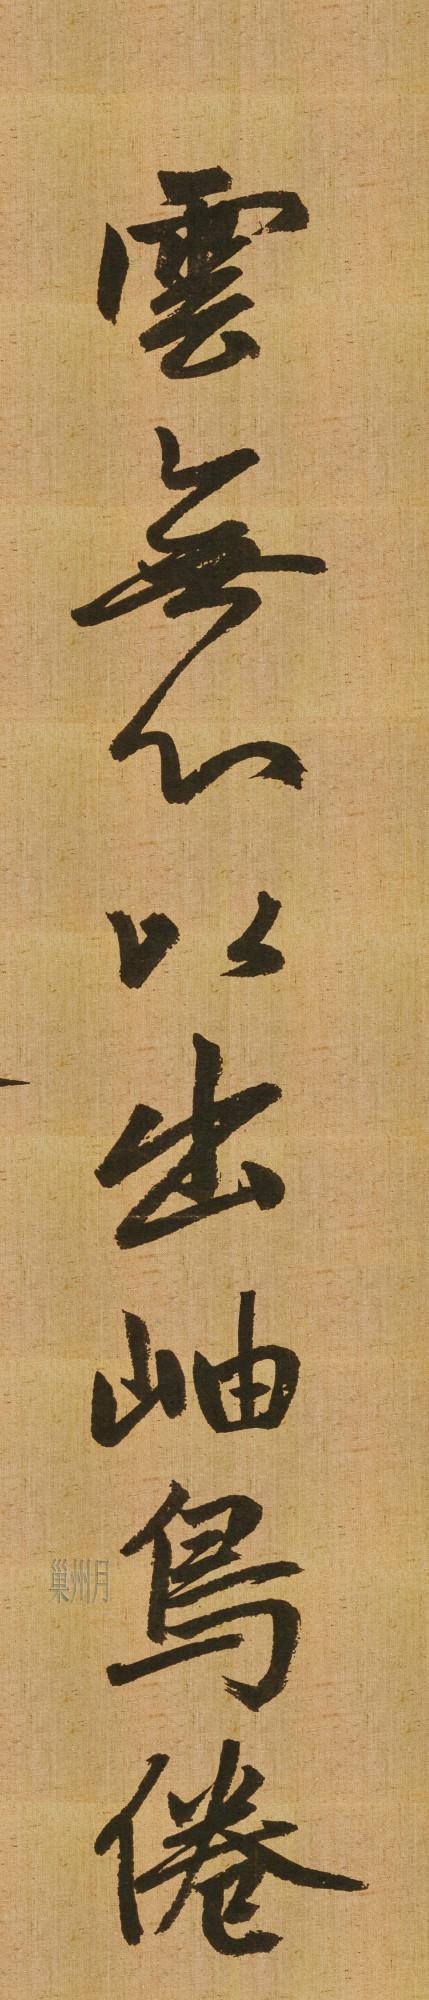 雲無心以出岫鳥倦
巢州月